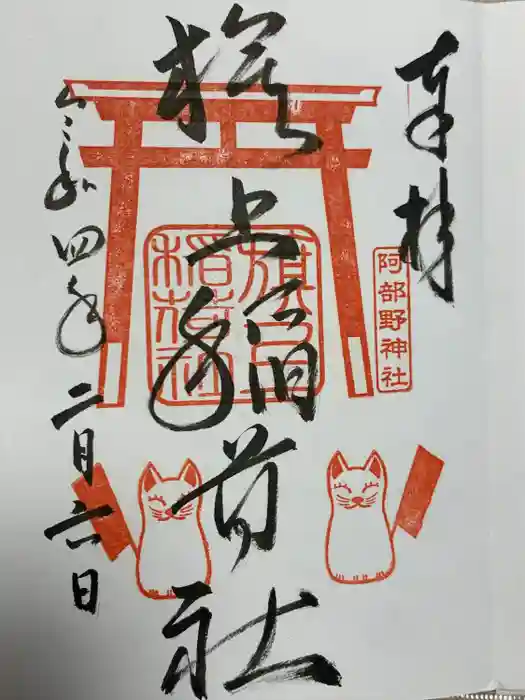 奉拝
阿部野神社
旗上稲荷社
旗上
稲荷社
令和四年二月六日